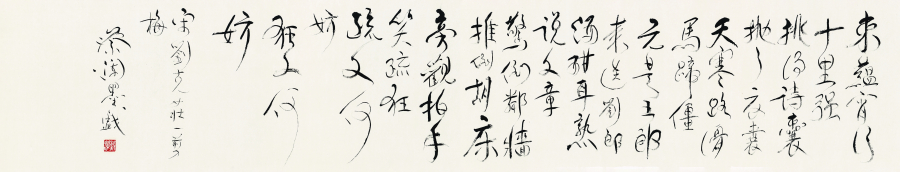 束蘊宵行
十里强
挑得詩囊
抛了衣囊
天寒路滑
馬蹄僵
元是王郎
来送劉郎
酒酣耳熱
说文章
驚倒鄰牆
推倒胡床
旁觀拍手
笑疏狂
疏又何
妨
狂又何
妨
宋劉克莊一剪
梅
蔡瀾墨戲